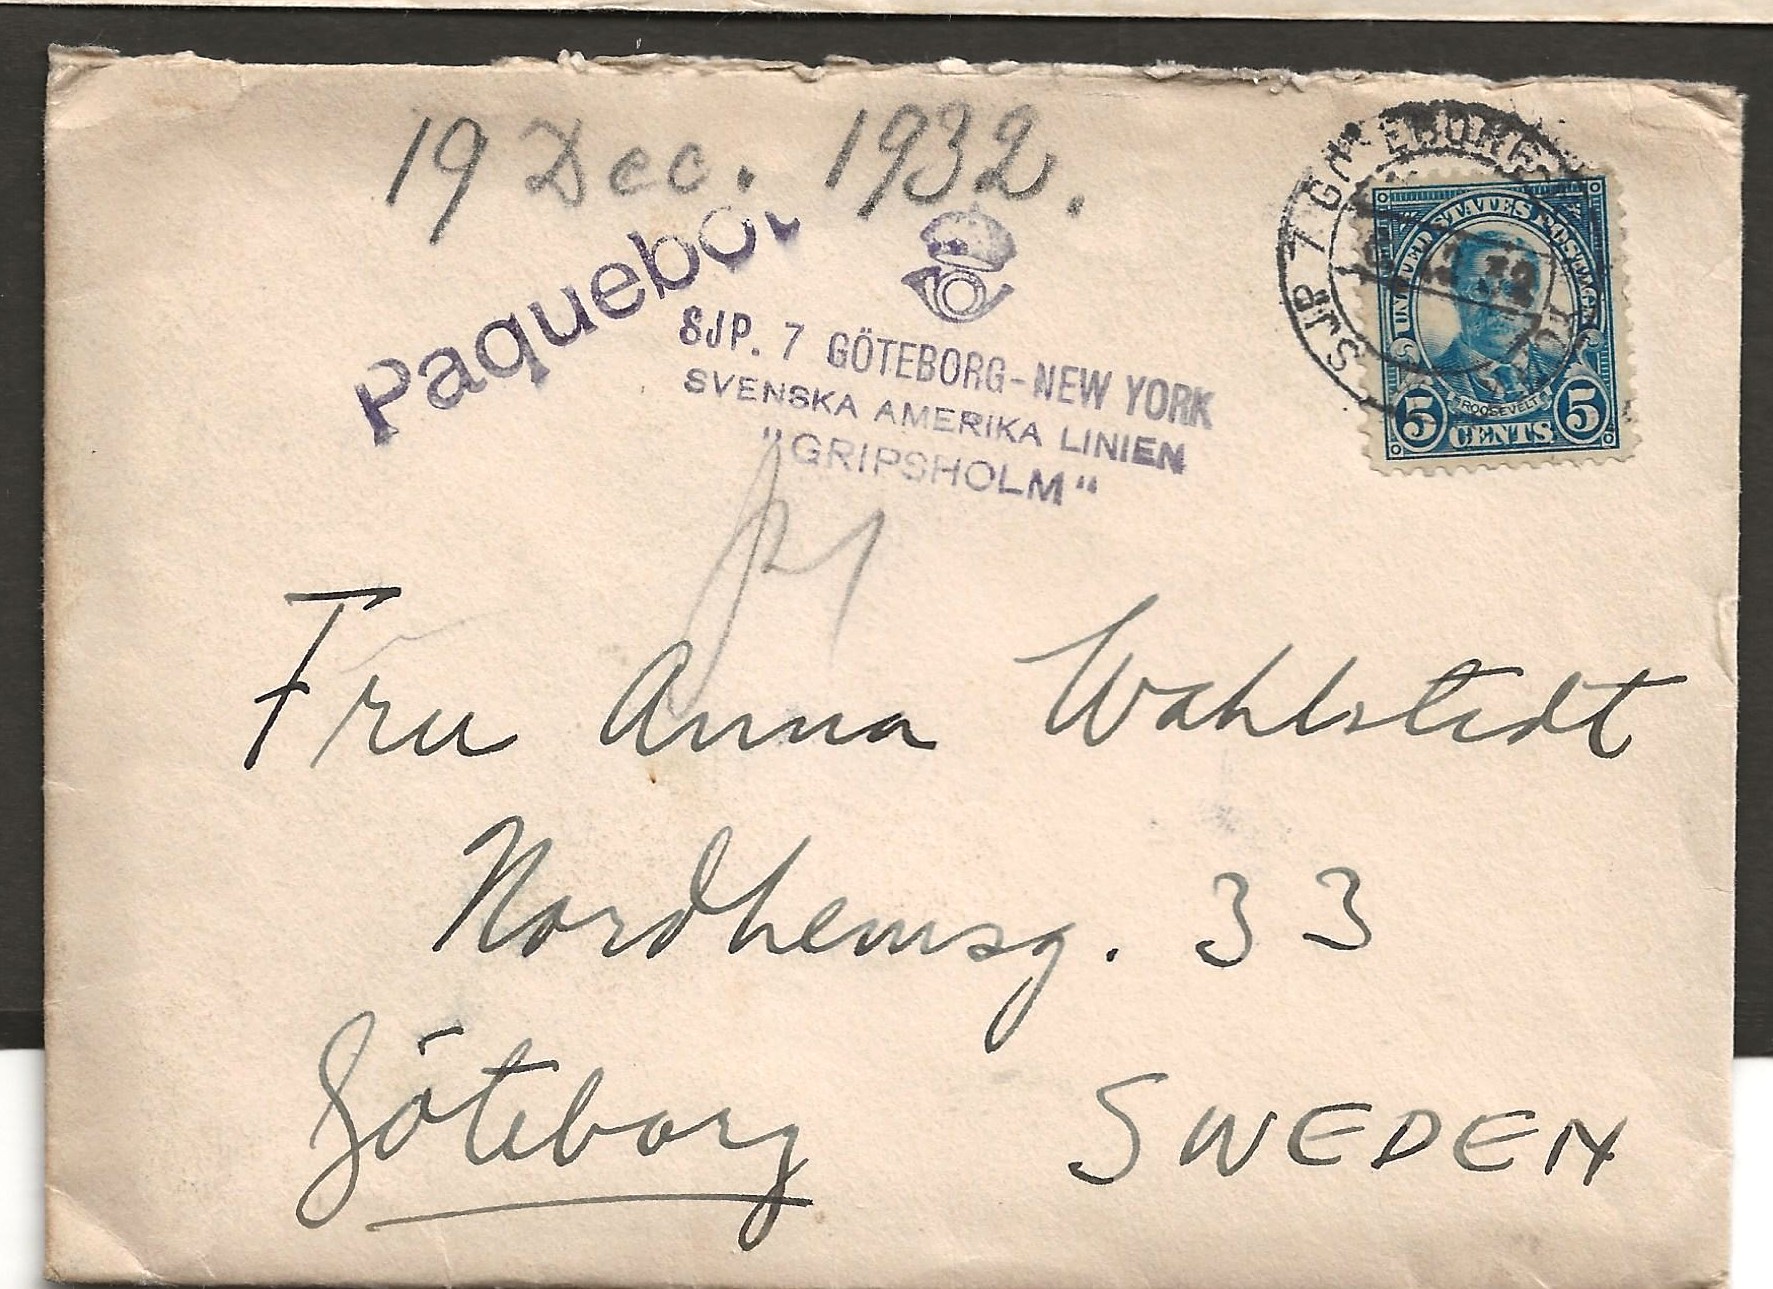 19 Dec. 1932.
Paquebot
SJP. 7 GÖTEBORG-NEW YORK
SVENSKA AMERIKA LINIEN
"GRIPSHOLM"
SJP 7 GÖTEBORG
UNITED STATES POSTAGE
ROOSEVELT
5 CENTS 5
Fru Anna Wahlstedt
Nordhemsg. 33
Göteborg SWEDEN